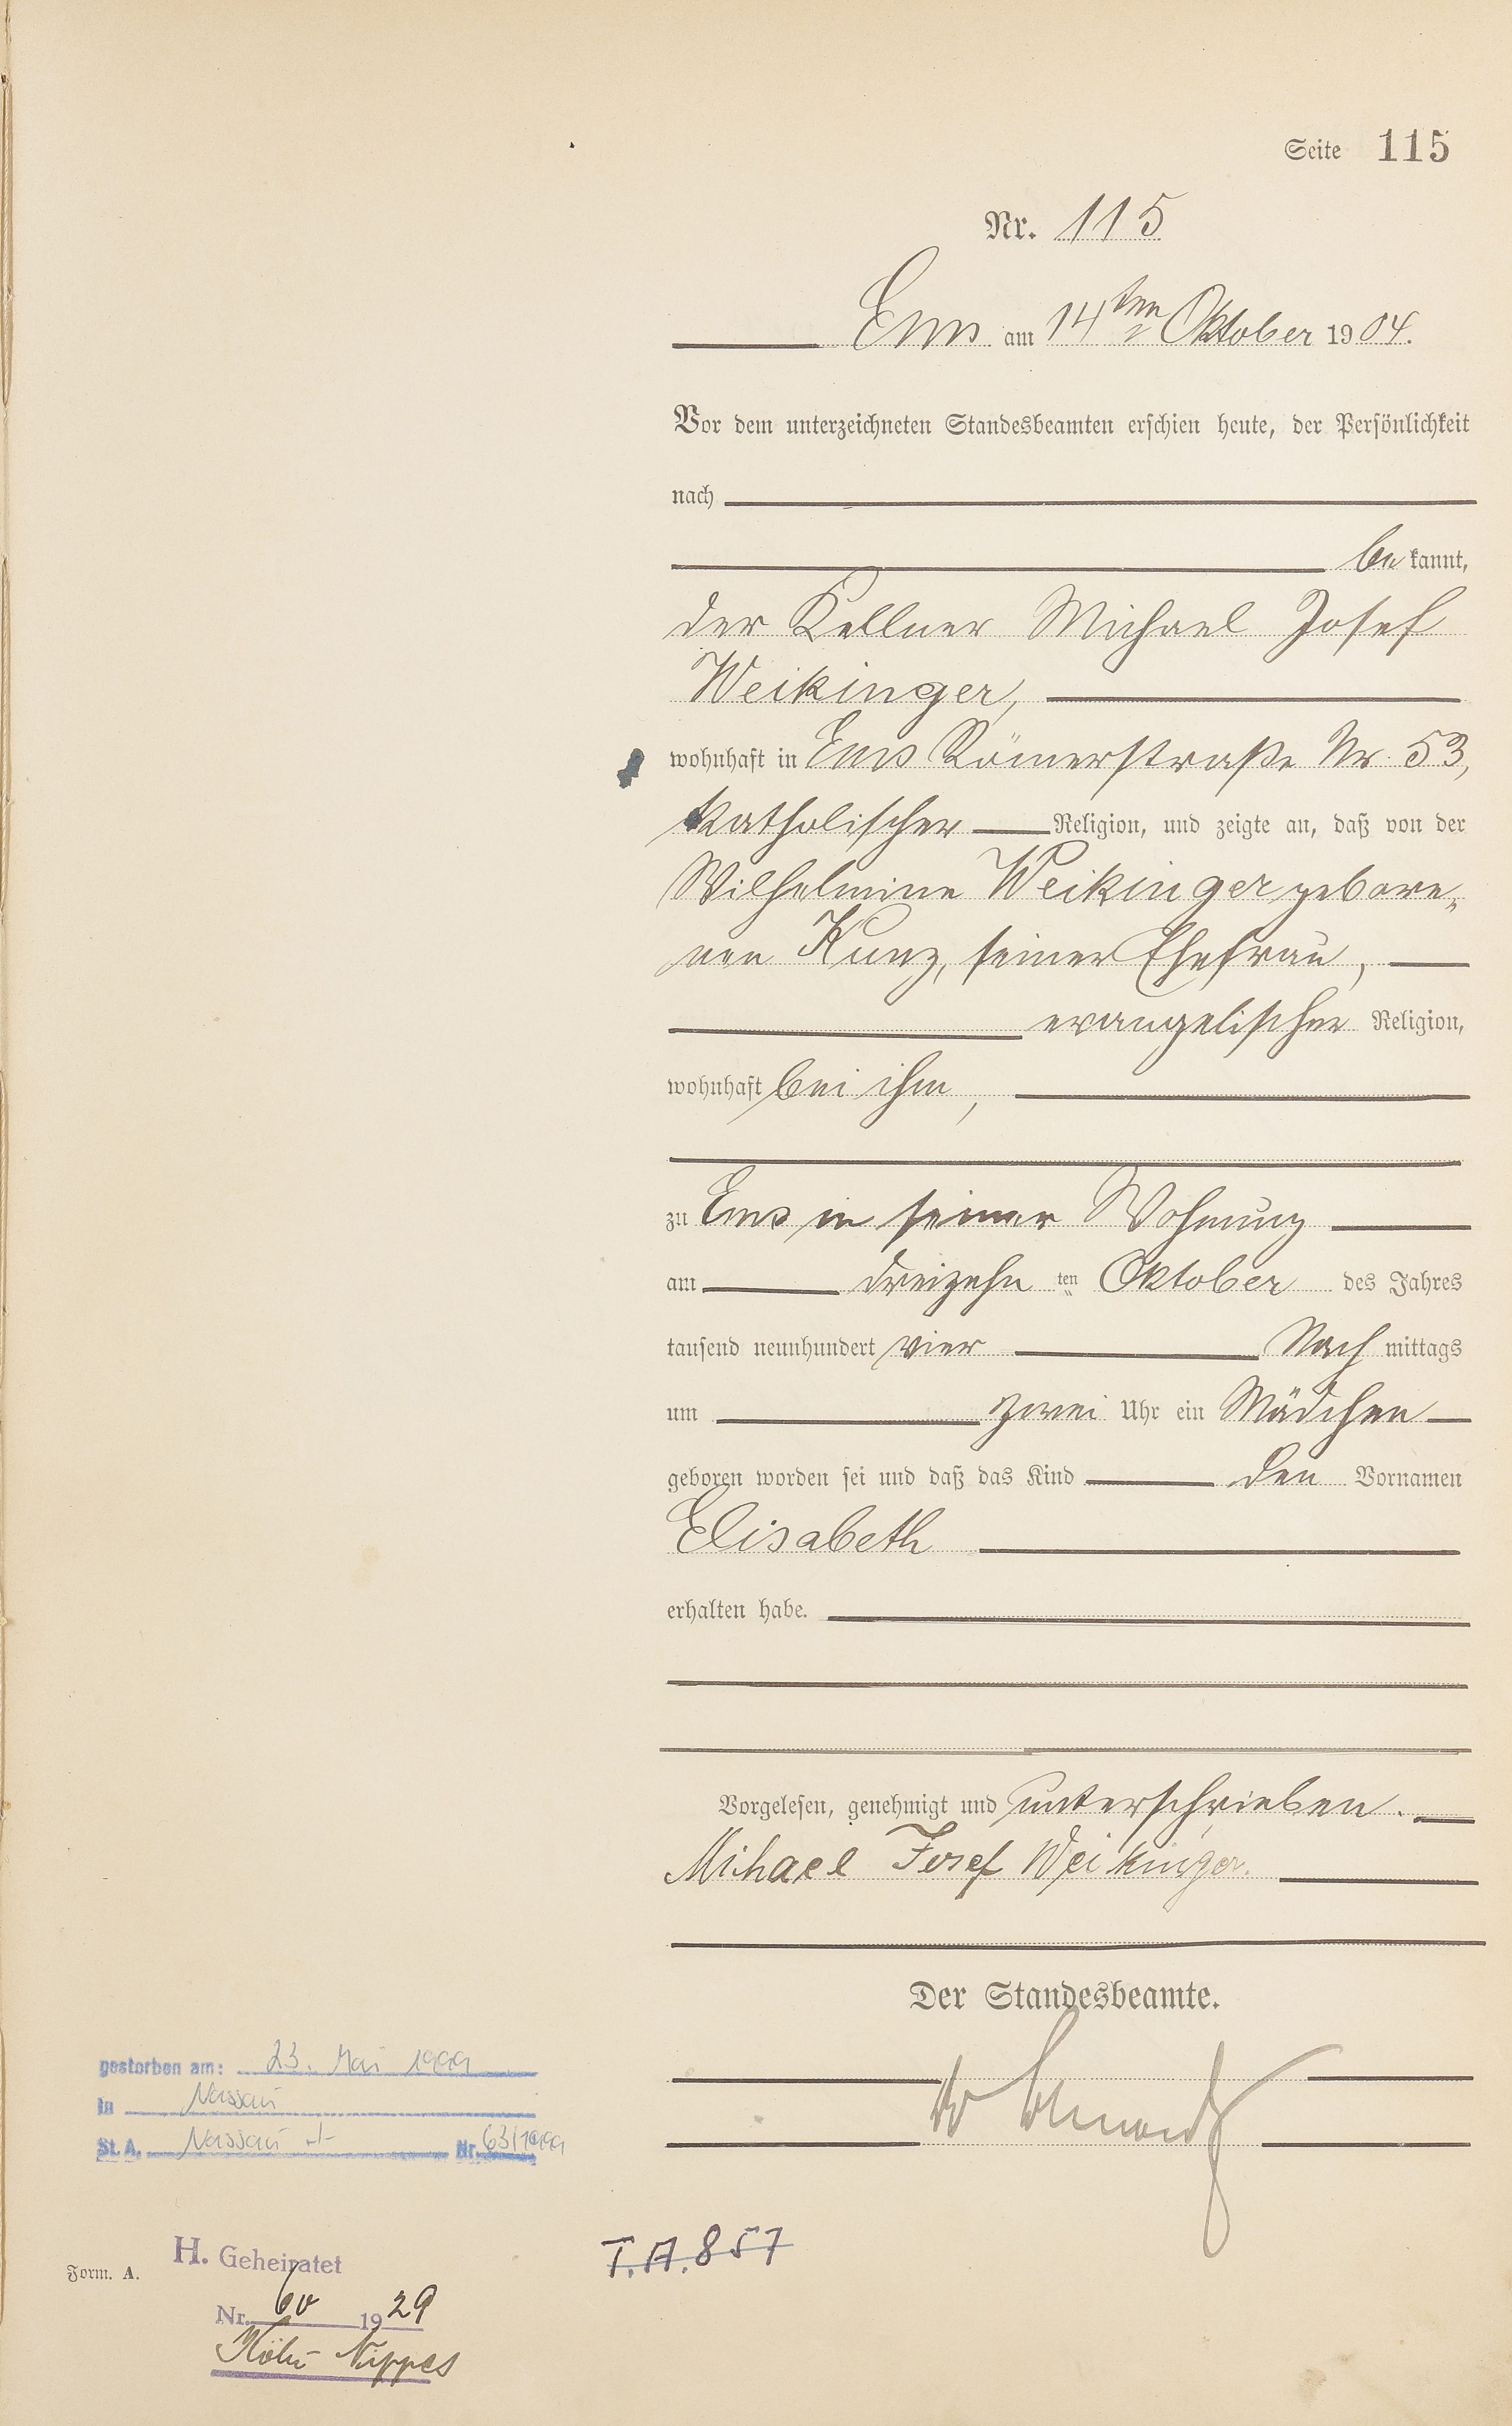 Seite 115
Nr. 115
Ems am 14ten Oktober 1904.
Vor dem unterzeichneten Standesbeamten erschien heute, der Persönlichkeit
nach
be kannt,
der Kellner Michael Josef
Weikinger,
wohnhaft in Ems Römerstraße Nr. 53,
katholischer Religion, und zeigte an, daß von der
Wilhelmine Weikinger gebore„
nen Kunz, seiner Ehefrau,
evangelischer Religion,
wohnhaft bei ihm,
zu Ems in seiner Wohnung
am dreizehn ten Oktober des Jahres
tausend neunhundert vier Nach mittags
um zwei Uhr ein Mädchen
geboren worden sei und daß das Kind den Vornamen
Elisabeth
erhalten habe.
Vorgelesen, genehmigt und unterschrieben.
Michael Josef Weikinger.
Der Standesbeamte.
gestorben am: 23. Mai 1999
in Nassau
St. A. Nassau Nr. 63/1999
T.A. 857
Form. A.
H. Geheiratet
Nr. 60 1929
Köln Nippes